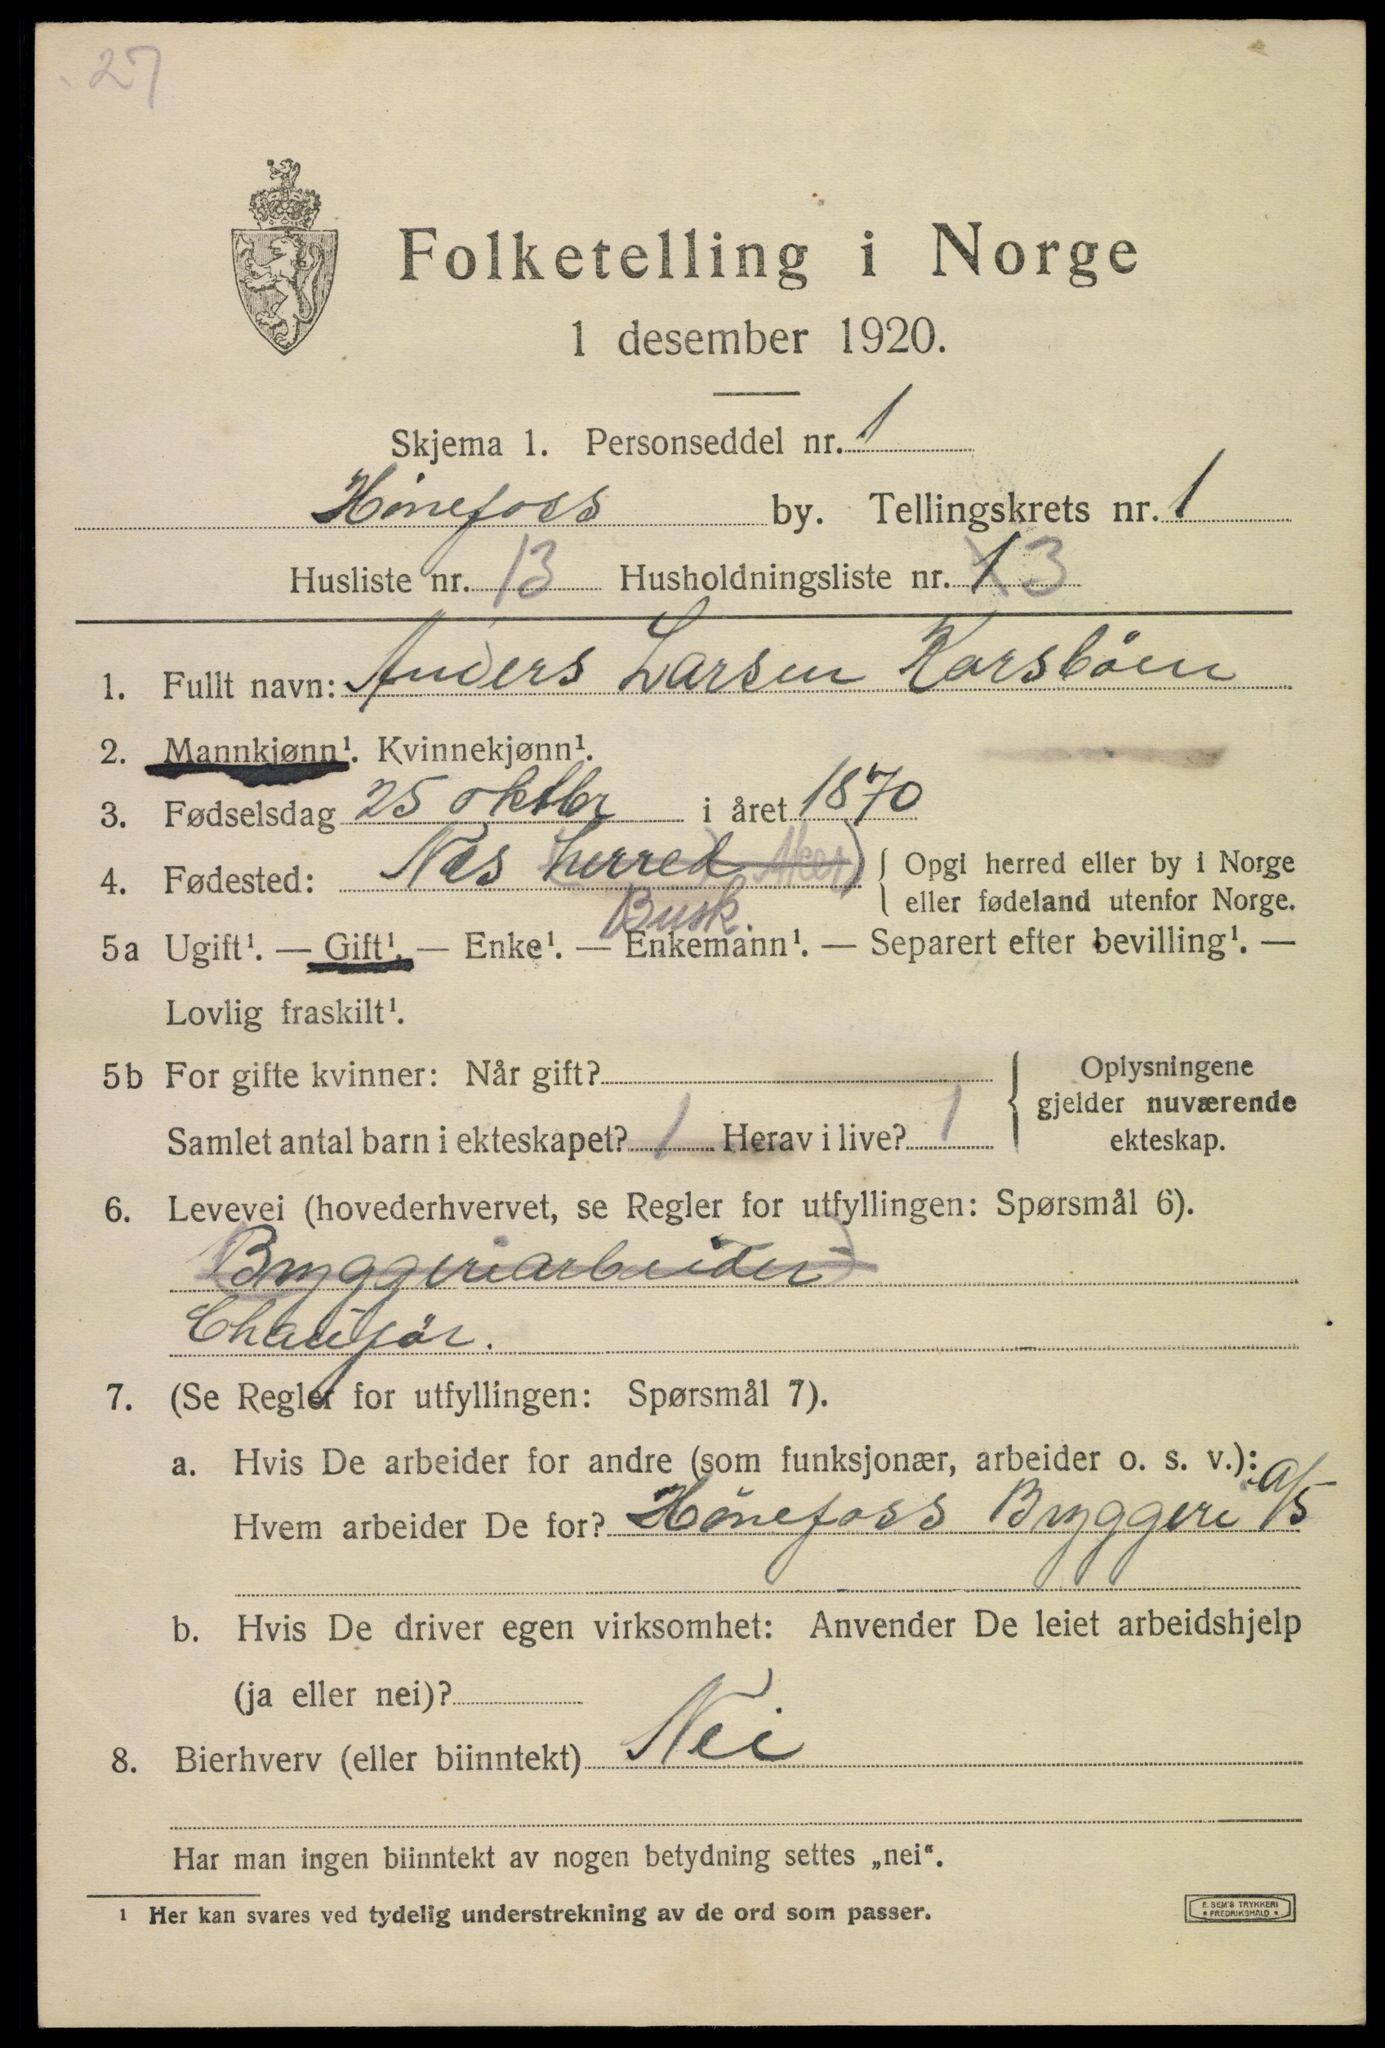 27
Folketelling i Norge
1 desember 1920.
Skjema 1. Personseddel nr. 1
Hønefoss by. Tellingskrets nr. 1
Husliste nr. 13 Husholdningsliste nr. 1 3
1. Fullt navn: Anders Larsen Karsböen
2. Mannkjønn¹. Kvinnekjønn¹.
3. Fødselsdag 25 oktbr i året 1870
4. Fødested: Nes herred Aker) { Opgi herred eller by i Norge
Busk. eller fødeland utenfor Norge.
5a Ugift¹. — Gift¹. — Enke¹. — Enkemann¹. — Separert efter bevilling¹. —
Lovlig fraskilt¹.
5b For gifte kvinner: Når gift? { Oplysningene
gjelder nuværende
Samlet antal barn i ekteskapet? 1 Herav i live? 1 ekteskap.
6. Levevei (hovederhvervet, se Regler for utfyllingen: Spørsmål 6).
(Bryggeriarbeider)
Chaufför.
7. (Se Regler for utfyllingen: Spørsmål 7).
a. Hvis De arbeider for andre (som funksjonær, arbeider o. s. v.):
Hvem arbeider De for? Hönefoss Bryggeri a/s
b. Hvis De driver egen virksomhet: Anvender De leiet arbeidshjelp
(ja eller nei)?
8. Bierhverv (eller biinntekt) Nei
Har man ingen biinntekt av nogen betydning settes „nei“.
¹ Her kan svares ved tydelig understrekning av de ord som passer.
E. SEM'S TRYKKERI
FREDRIKSHALD